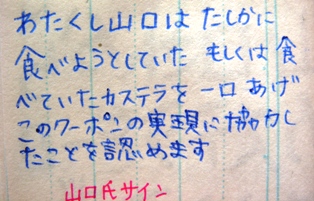 わたくし山口は たしかに
食べようとしていた もしくは 食
べていたカステラを 一口 あげ
このクーポンの実現に協力し
たことを認めます
山口氏サイン